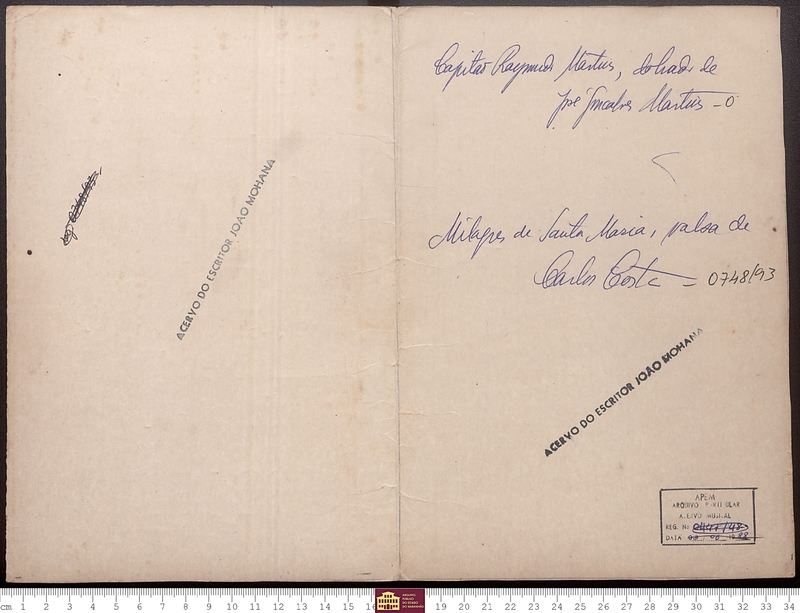 ACERVO DO ESCRITOR JOÃO MOHANA
Capitão Raymundo Martins, dobrado de
José Gonçalves Martins - O
Milagres de Santa Maria, valsa de
Carlos Costa - 0748/93
ACERVO DO ESCRITOR JOÃO MOHANA
APEM
ARQUIVO PARTICULAR
ACERVO MUSICAL
REG. Nº
DATA
cm 1 2 3 4 5 6 7 8 9 10 11 12 13 14 15 16 ARQUIVO PÚBLICO DO ESTADO DO MARANHÃO 19 20 21 22 23 24 25 26 27 28 29 30 31 32 33 34